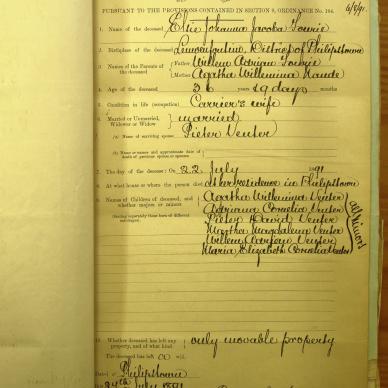 6/8/91.
PURSUANT TO THE PROVISIONS CONTAINED IN SECTION 8, ORDINANCE No. 104.
1. Name of the deceased Elsie Johanna Jacoba Fourie
2. Birthplace of the deceased District of Philipstown
3. Names of the Parents of the deceased
Father Willem Adrian Fourie
Mother Agatha Willemina Naude
4. Age of the deceased 36 years 19 days months
5. Condition in life (occupation) Carrier's wife
6. Married or Unmarried, Widower or Widow married
(a) Name of surviving spouse Pieter Venter
(b) Name or names and approximate date of death of previous spouse or spouses
7. The day of the decease: On 22 July 1891
8. At what house or where the person died at her residence in Philipstown
9. Names of Children of deceased, and whether majors or minors
(Stating separately those born of different marriages)
Agatha Willemina Venter
Adriana Cornelia Venter
Pieter David Venter
Martha Magdalena Venter
Willem Adrian Venter
Maria Elizabeth Cornelia Venter
all Minors
10. Whether deceased has left any property, and of what kind only movable property
The deceased has left no will.
Dated at Philipstown
24th July 1891